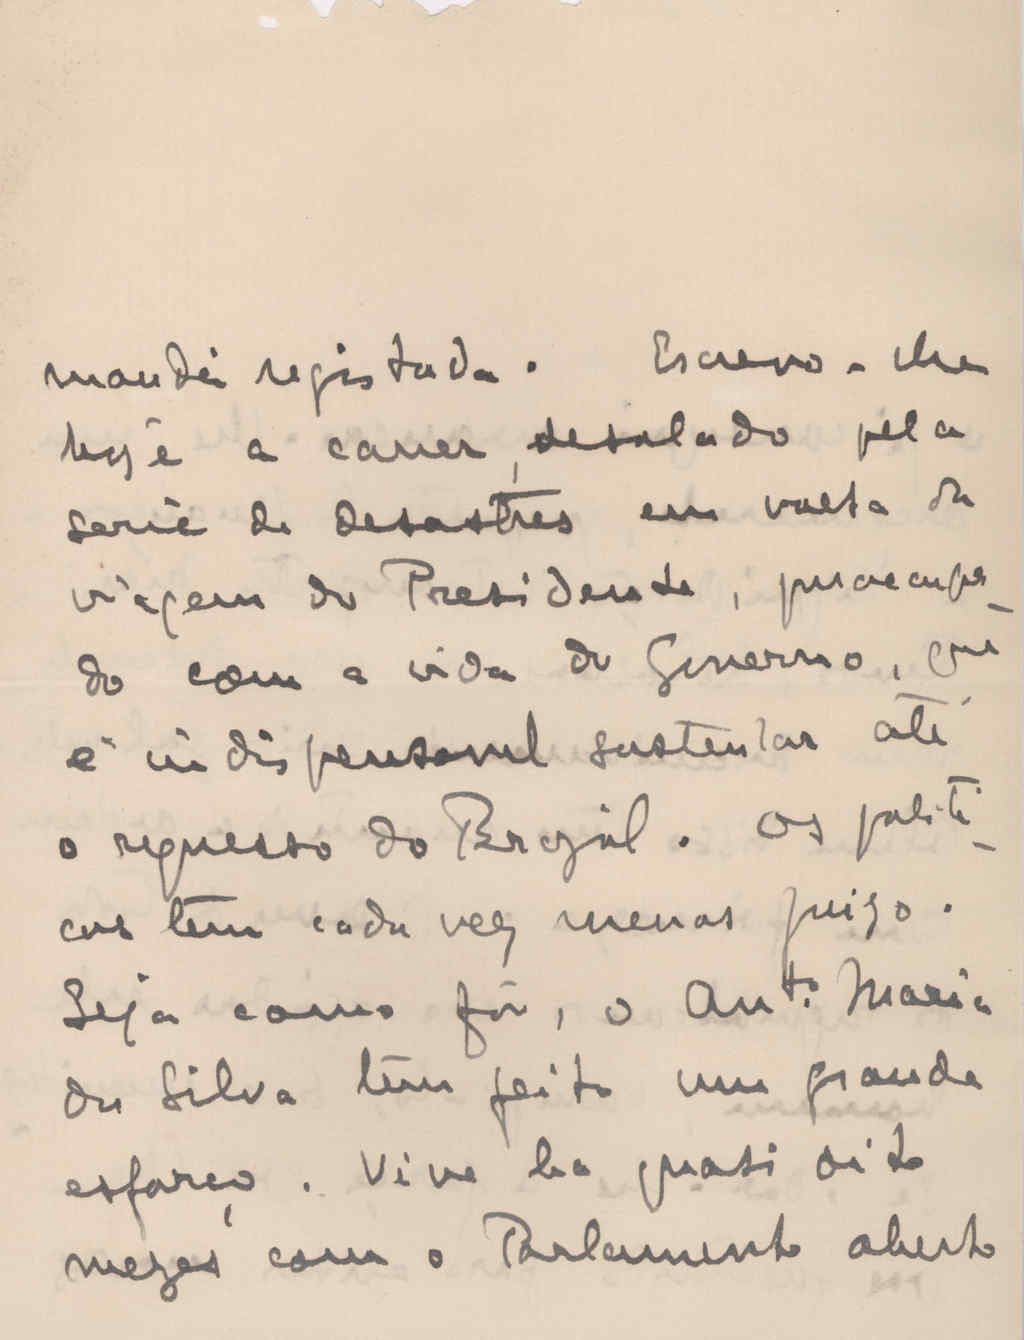 mandei registada. Escrevo-lhe
hoje a correr, desolado pela
serie de desastres em volta da
viagem do Presidente, preocupa-
do com a vida do Governo, que
é indispensavel sustentar até
o regresso do Brazil. Os politi-
cos têm cada vez menos juizo.
Seja como fôr, o Antº. Maria
da Silva tem feito um grande
esforço. Vive ha quasi oito
mezes com o Parlamento aberto